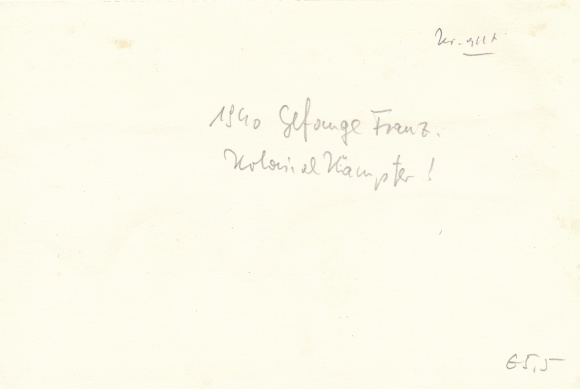 Nr.
1940 Gefange Franz.
Kolonial Kämpfer!
65,5